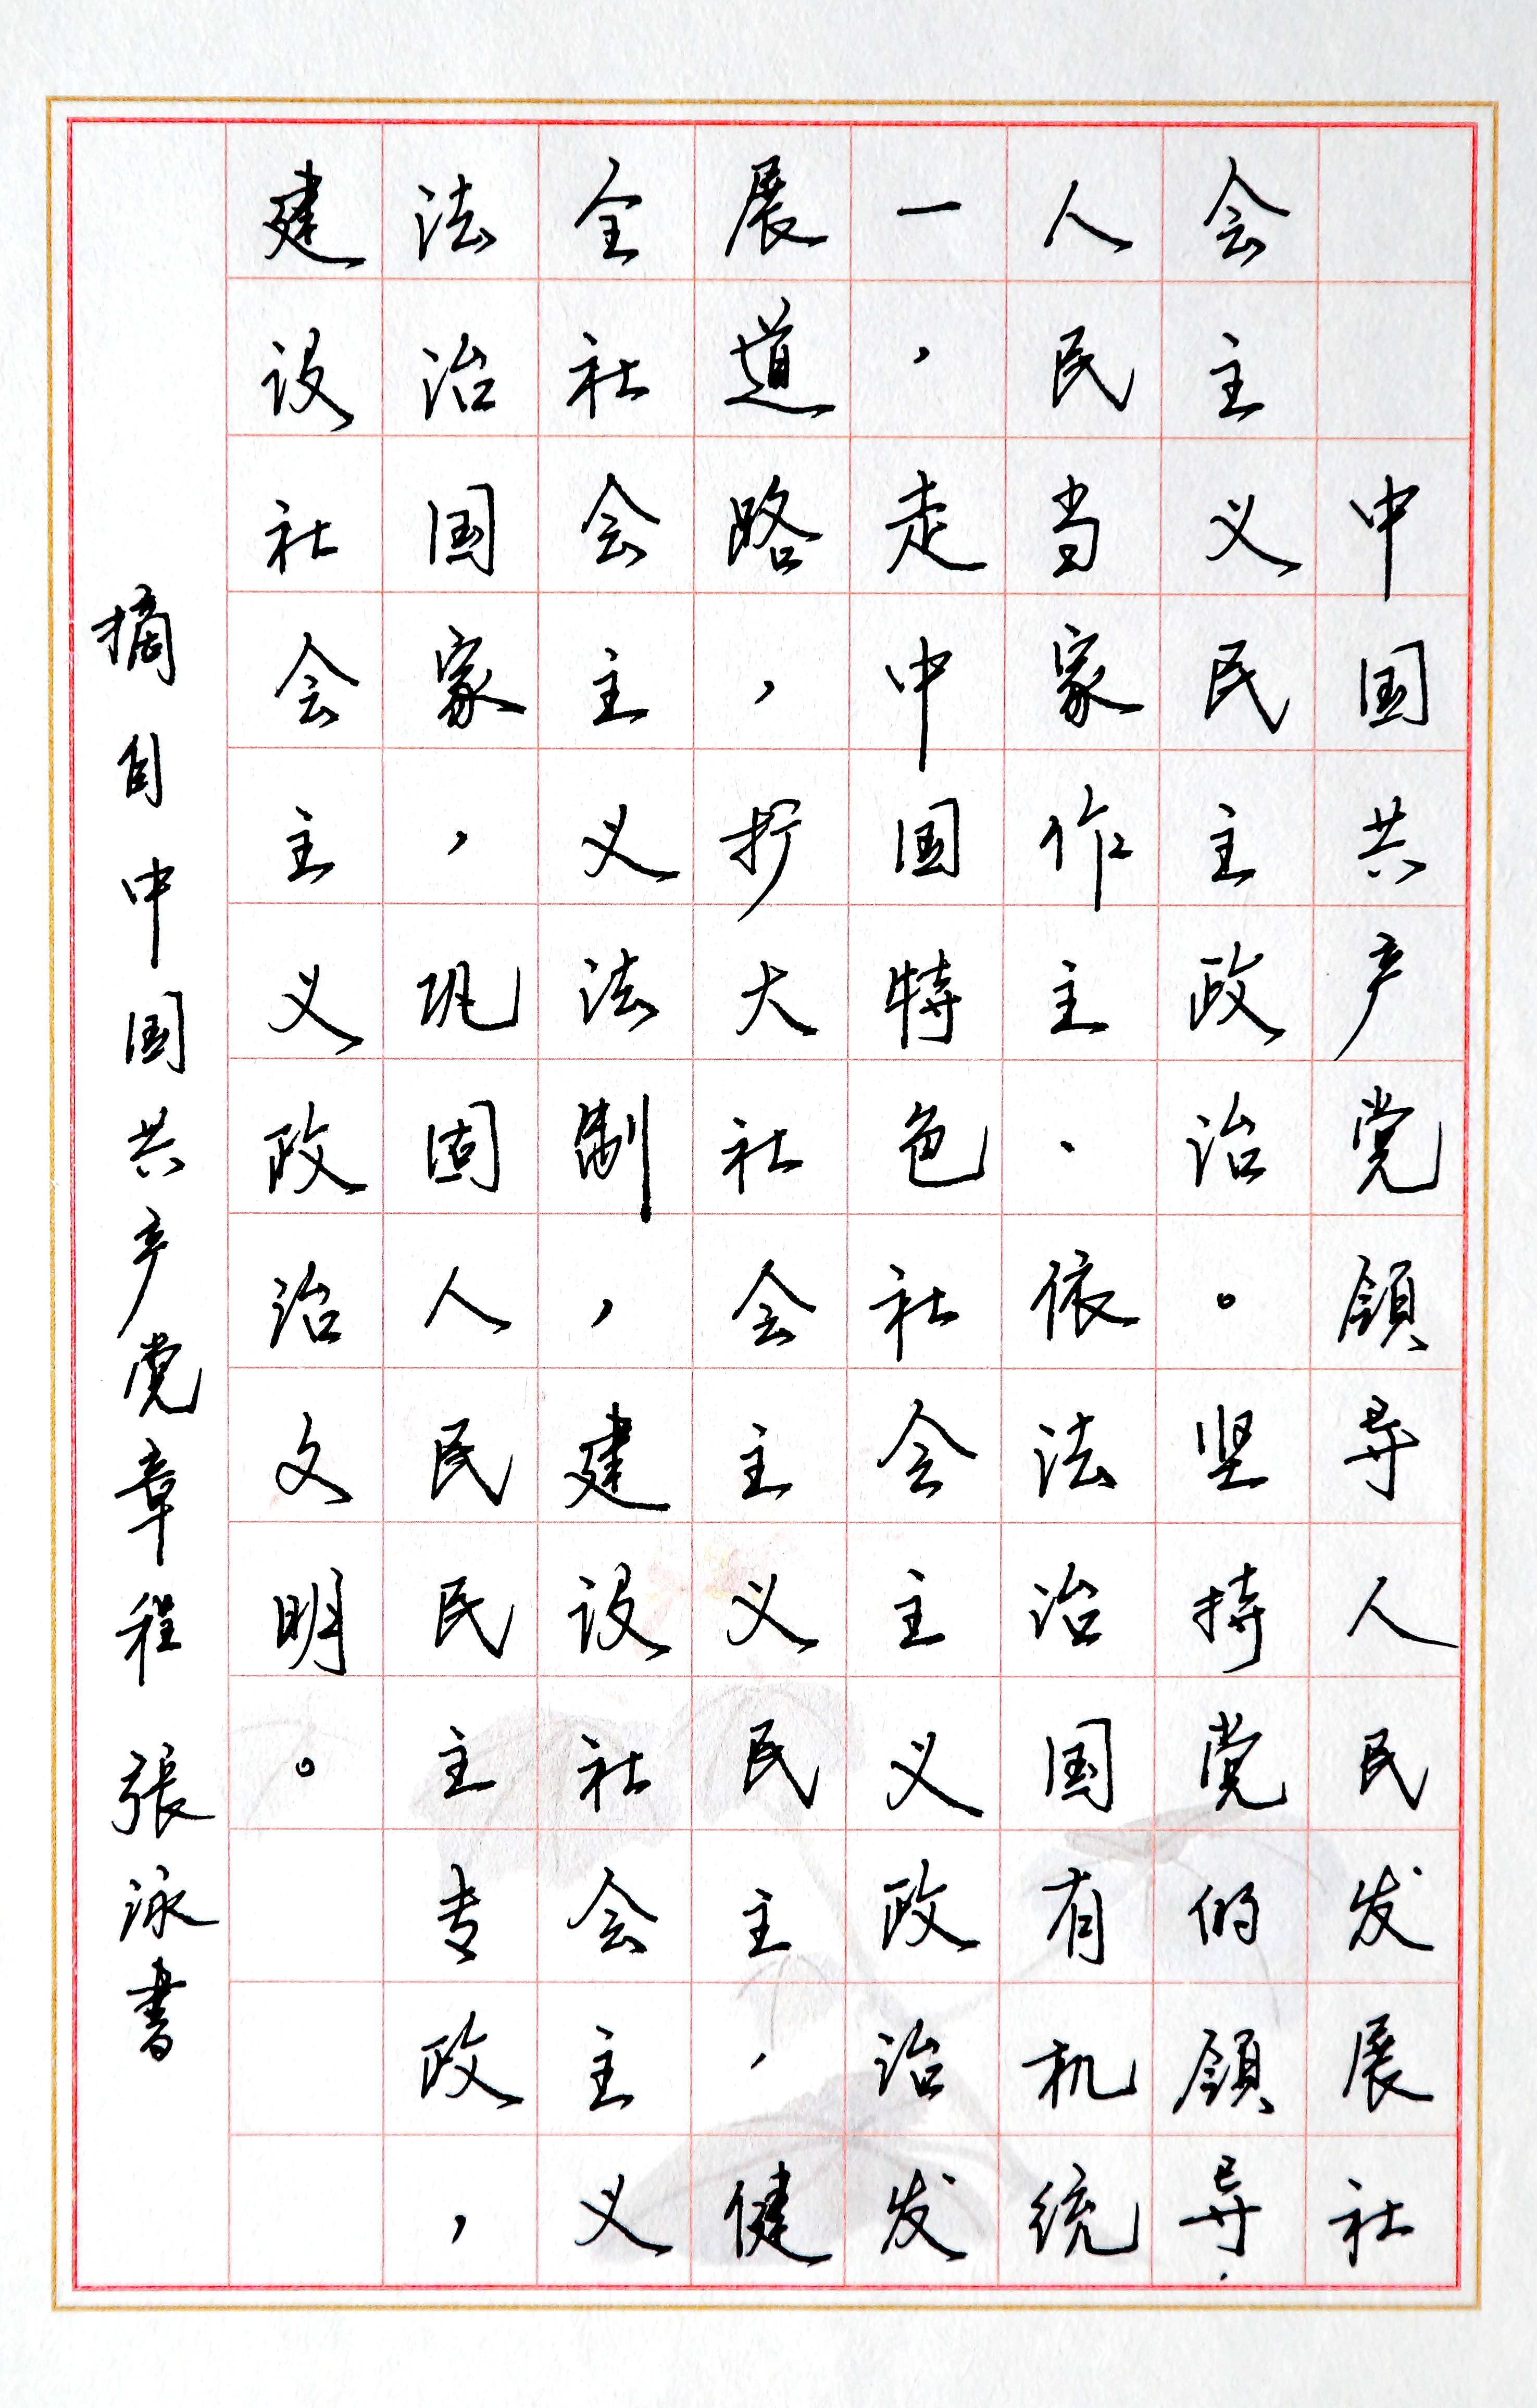 中国共产党领导人民发展社
会主义民主政治。坚持党的领导、
人民当家作主、依法治国有机统
一,走中国特色社会主义政治发
展道路,扩大社会主义民主,健
全社会主义法制,建设社会主义
法治国家,巩固人民民主专政,
建设社会主义政治文明。
摘自中国共产党章程 張泳書